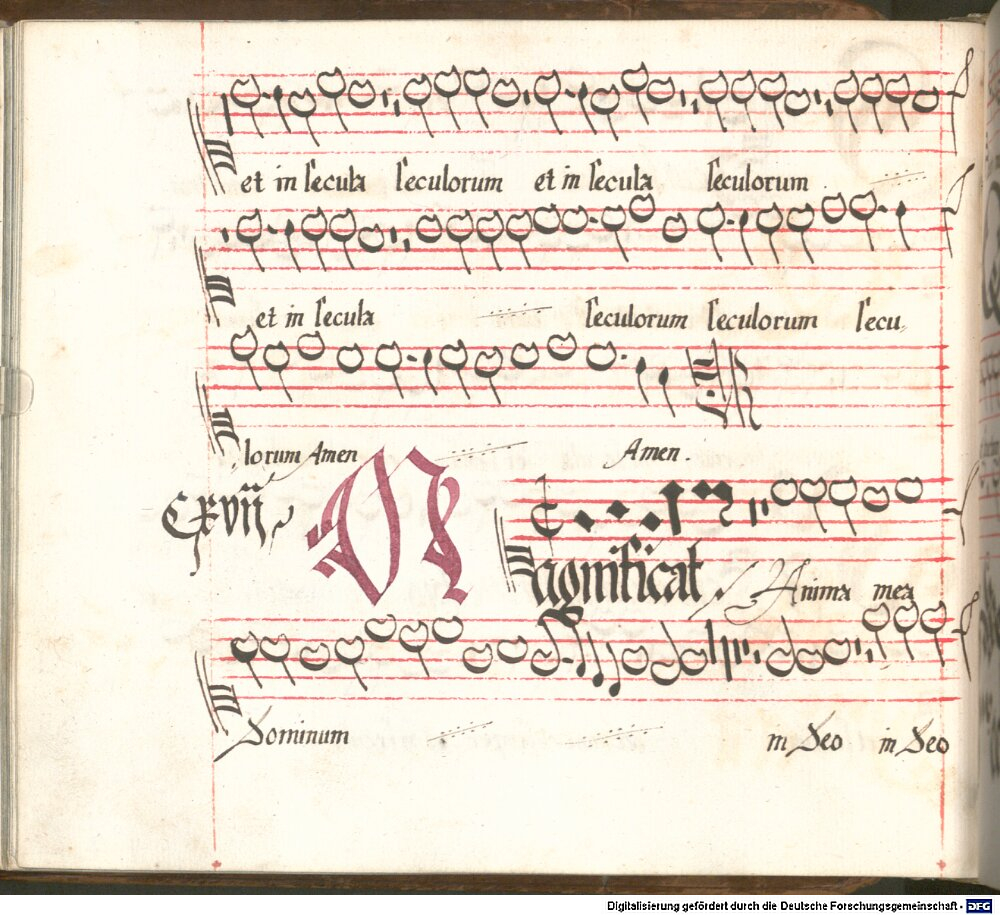 et in secula seculorum et in secula seculorum
et in secula seculorum seculorum secu
lorum Amen Amen
Cxvij
Magnificat Anima mea
Dominum in Deo in Deo
Digitalisierung gefördert durch die Deutsche Forschungsgemeinschaft - DFG